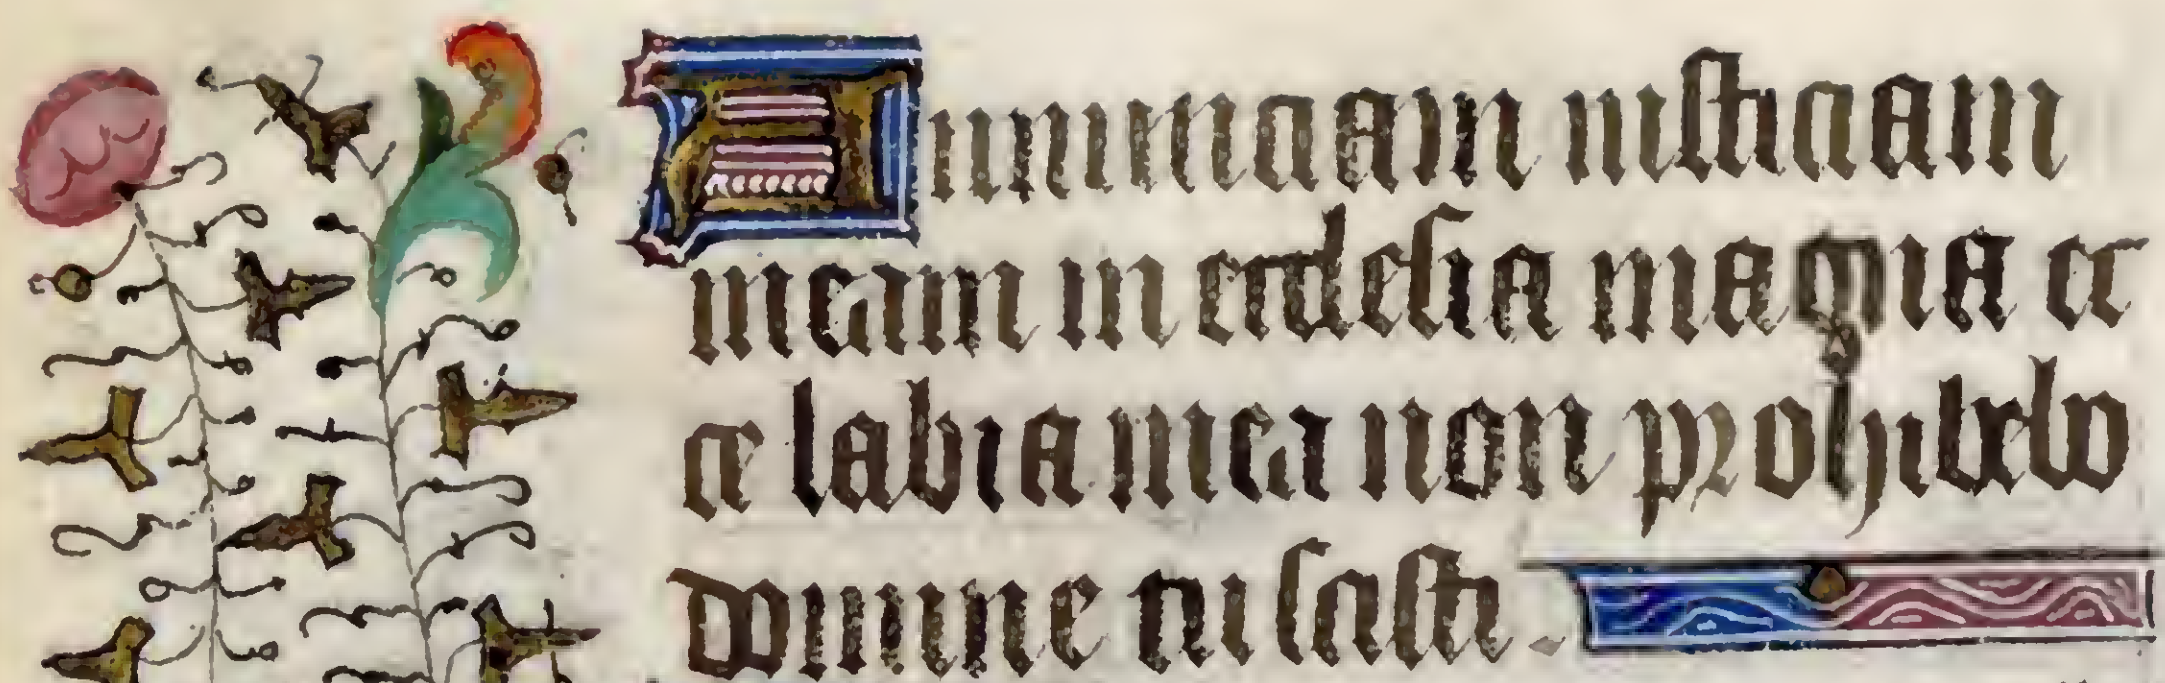 Annunciavi iusticiam
meam in ecclesia magna ec
ce labia mea non prohibebo
domine tu scisti.